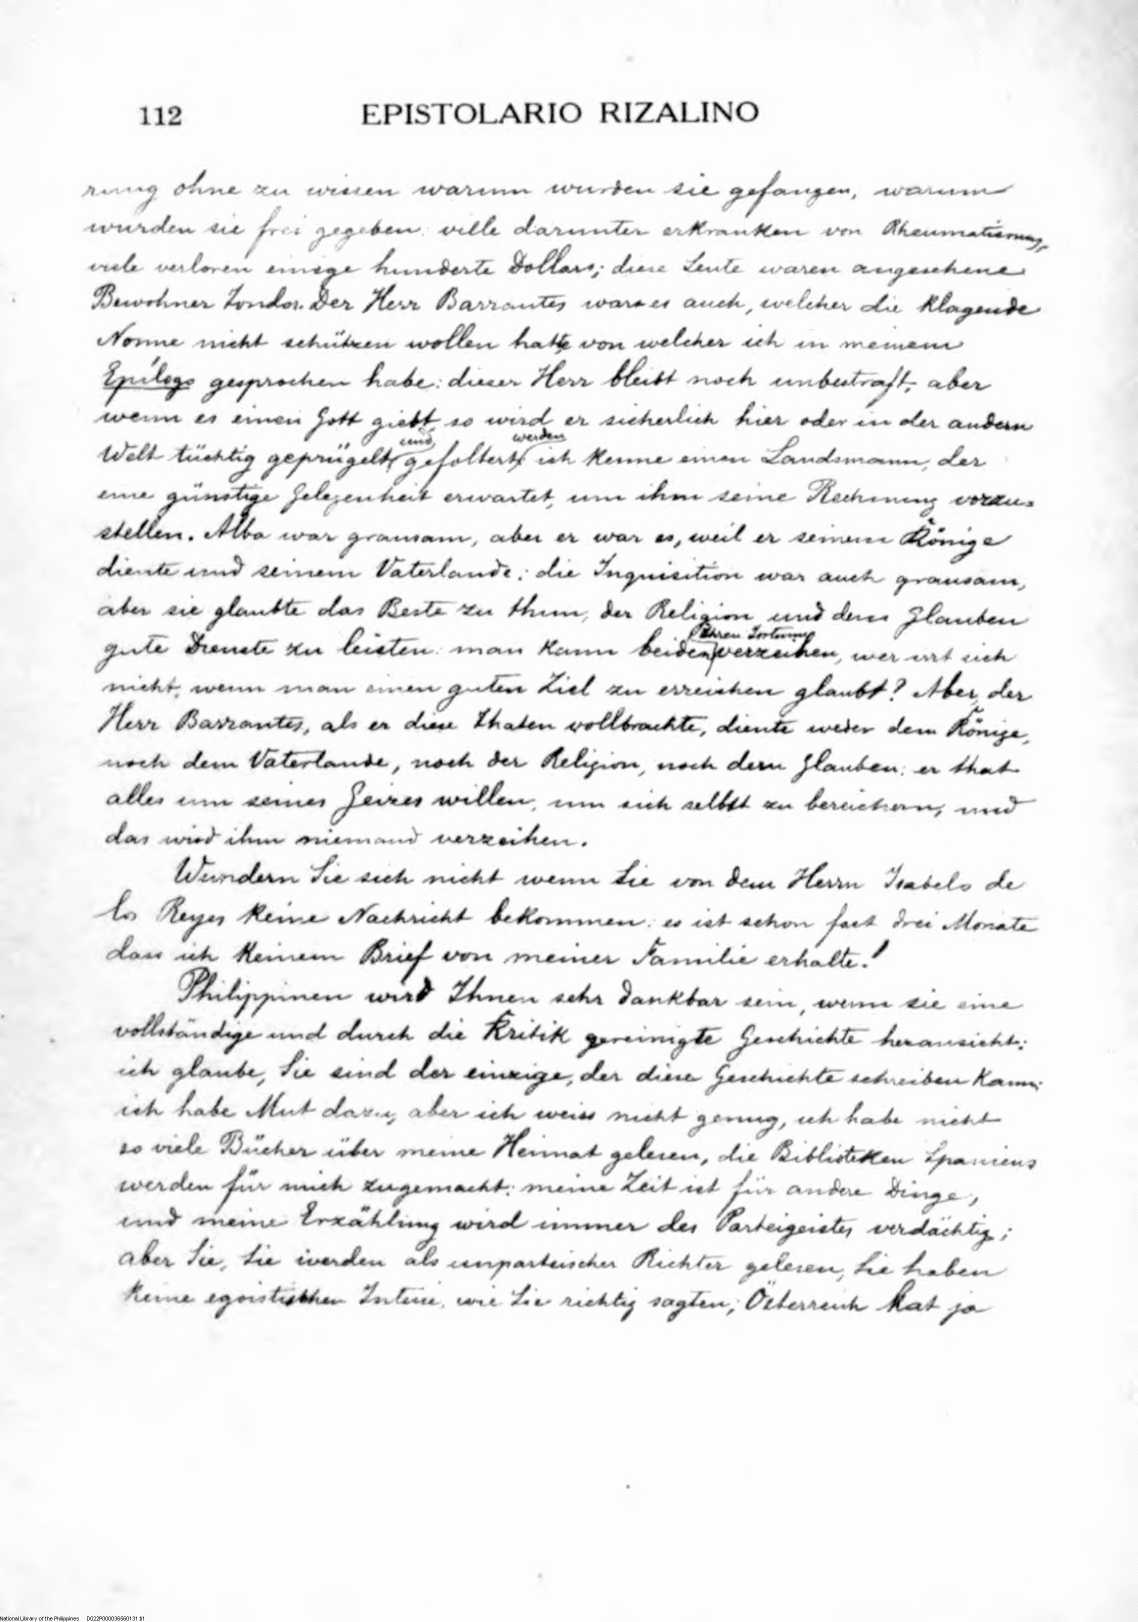 112 EPISTOLARIO RIZALINO
rung ohne zu wissen warum wurden sie gefangen, warum
wurden sie frei gegeben: ville darunter erkranken von Rheumatismus,
viele verloren einige hunderte Dollars; diese Leute waren angesehene
Bewohner Tondos. Der Herr Barrantes war es auch, welcher die klagende
Nonne nicht schützen wollen hatte von welcher ich in meinem
Epílogo gesprochen habe: dieser Herr bleibt noch unbestraft, aber
wenn es einen Gott giebt so wird er sicherlich hier oder in der andern
Welt tüchtig geprügelt und gefoltert werden ich kenne einen Landsmann, der
eine günstige Gelegenheit erwartet, um ihm seine Rechnung vorzu-
stellen. Alba war grausam, aber er war es, weil er seinem Könige
diente und seinem Vaterlande; die Inquisition war auch grausam,
aber sie glaubte das Beste zu thun, der Religion und dem Glauben
gute Dienste zu leisten: man kann beiden ihren Irrtum verzeihen, wer irrt sich
nicht, wenn man einen guten Ziel zu erreichen glaubt? Aber, der
Herr Barrantes, als er diese Thaten vollbrachte, diente weder dem Könige,
noch dem Vaterlande, noch der Religion, noch dem Glauben: er that
alles um seines Geizes willen, um sich selbst zu bereichern, und
das wird ihm niemand verzeihen.
Wundern Sie sich nicht wenn Sie von dem Herrn Isabelo de
los Reyes keine Nachricht bekommen: es ist schon fast drei Monate
dass ich keinem Brief von meiner Familie erhalte!
Philippinen wird Ihnen sehr dankbar sein, wenn sie eine
vollständige und durch die Kritik gereinigte Geschichte heransicht:
ich glaube, Sie sind der einzige, der diese Geschichte schreiben kann:
ich habe Mut dazu, aber ich weiss nicht genug, ich habe nicht
so viele Bücher über meine Heimat gelesen, die Biblioteken Spaniens
werden für mich zugemacht: meine Zeit ist für andere Dinge,
und meine Erzählung wird immer des Parteigeistes verdächtig;
aber Sie, Sie werden als unparteiischer Richter gelesen, Sie haben
keine egoistischen wie Sie richtig sagten; Österreich hat ja
National Library of the Philippines